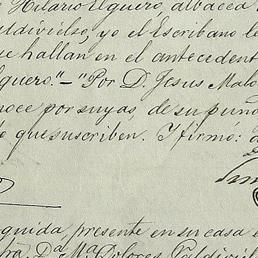 Hilario Uguero, albacea
Valdivielso, yo el Escribano le
se hallan en el antecedent
guero."—"Por D. Jesus Malo
noce por suyas, de su puño
que suscriben. I firmo: a
guida, presente en su casa
Da. Ma. Dolores Valdivi